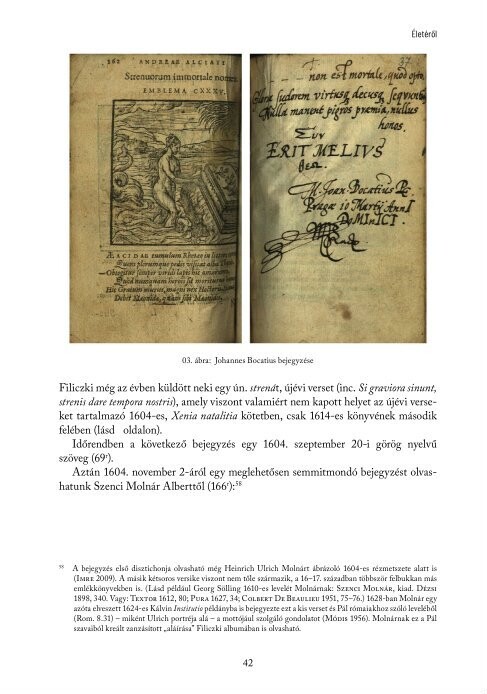 Életéről
562 ANDREAE ALCIATI
Strenuorum immortale nomen.
EMBLEMA CXXXV.
AEACIDAE tumulum Rhetaeo in litore
Quem plerumque pedes visitat alba
Obtegitur semper viridi lapis hic amarantho
Quod nunquam herois sit moriturus
Hic Graium murus, magni nex Hectoris
Debet Maeonidae, quam sibi Maeonides
37
non est mortale, quod opto.
Gloria sudorem virtusq; decusq; sequuntur
Nulla manent pigros præmia, nullus
honos.
Συν
ERIT MELIVS
θεω.
M. Joan. Bocatius P.C.
Praga 10 Martij AnnI
DoMInICI
03. ábra: Johannes Bocatius bejegyzése
Filiczki még az évben küldött neki egy ún. strenát, újévi verset (inc. Si graviora sinunt,
strenis dare tempora nostris), amely viszont valamiért nem kapott helyet az újévi verse-
ket tartalmazó 1604-es, Xenia natalitia kötetben, csak 1614-es könyvének második
felében (lásd oldalon).
Időrendben a következő bejegyzés egy 1604. szeptember 20-i görög nyelvű
szöveg (69ʳ).
Aztán 1604. november 2-áról egy meglehetősen semmitmondó bejegyzést olvas-
hatunk Szenci Molnár Alberttől (166ʳ):⁵⁸
⁵⁸ A bejegyzés első disztichonja olvasható még Heinrich Ulrich Molnárt ábrázoló 1604-es rézmetszete alatt is
(Imre 2009). A másik kétsoros versike viszont nem tőle származik, a 16–17. században többször felbukkan más
emlékkönyvekben is. (Lásd például Georg Sölling 1610-es levelét Molnárnak: Szenci Molnár, kiad. Dézsi
1898, 340. Vagy: Textor 1612, 80; Pura 1627, 34; Colbert De Beaulieu 1951, 75–76.) 1628-ban Molnár egy
azóta elveszett 1624-es Kálvin Institutio példányba is bejegyezte ezt a kis verset és Pál rómaiakhoz szóló leveléből
(Rom. 8.31) – miként Ulrich portréja alá – a mottójául szolgáló gondolatot (Módis 1956). Molnárnak ez a Pál
szavaiból kreált zanzásított „aláírása” Filiczki albumában is olvasható.
42